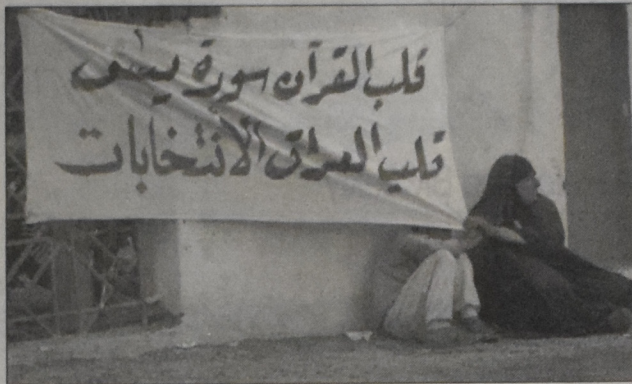 قلب القرآن سورة يس
قلب العراق الانتخابات